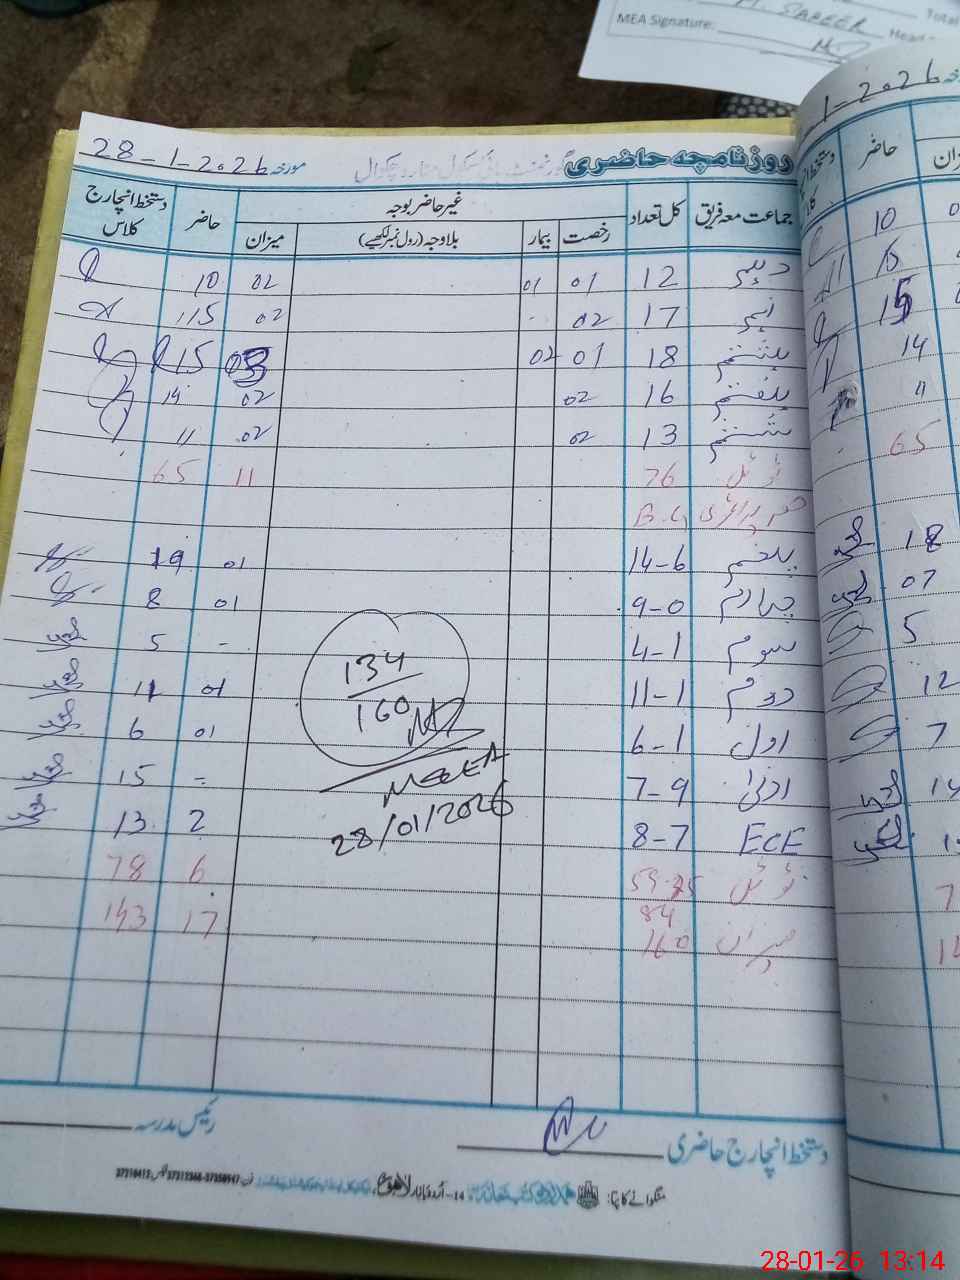 MEA Signature:
Total
M. SAFEER
Head
1-2026
روزنامچہ حاضری گورنمنٹ ہائی سکول منارہ چکوال مورخہ 28-1-2026
جماعت معہ فریق کل تعداد غیر حاضر بوجہ حاضر دستخط انچارج کلاس
رخصت بیمار بلاوجہ (رول نمبر لکھیے) میزان
دہم 12 01 01 02 10
نہم 17 02 02 15
ہشتم 18 01 02 03 15
ہفتم 16 02 02 14
ششم 13 02 02 11
ٹوٹل 76 11 65
حصہ پرائمری B-G
پنجم 14-6 01 19
چہارم 9-0 01 8
سوم 4-1 - 5
دوم 11-1 01 11
اول 6-1 01 6
ادنیٰ 7-9 - 15
ECE 8-7 2 13
ٹوٹل 59-25 6 78
84
میزان 160 17 143
134
160
MEA
28/01/2026
دستخط انچارج حاضری
رئیس مدرسہ
منگوانے کا پتہ:
14-اردو بازار لاہور
حاضر
10
15
15
14
11
65
18
07
5
12
7
14
28-01-26 13:14